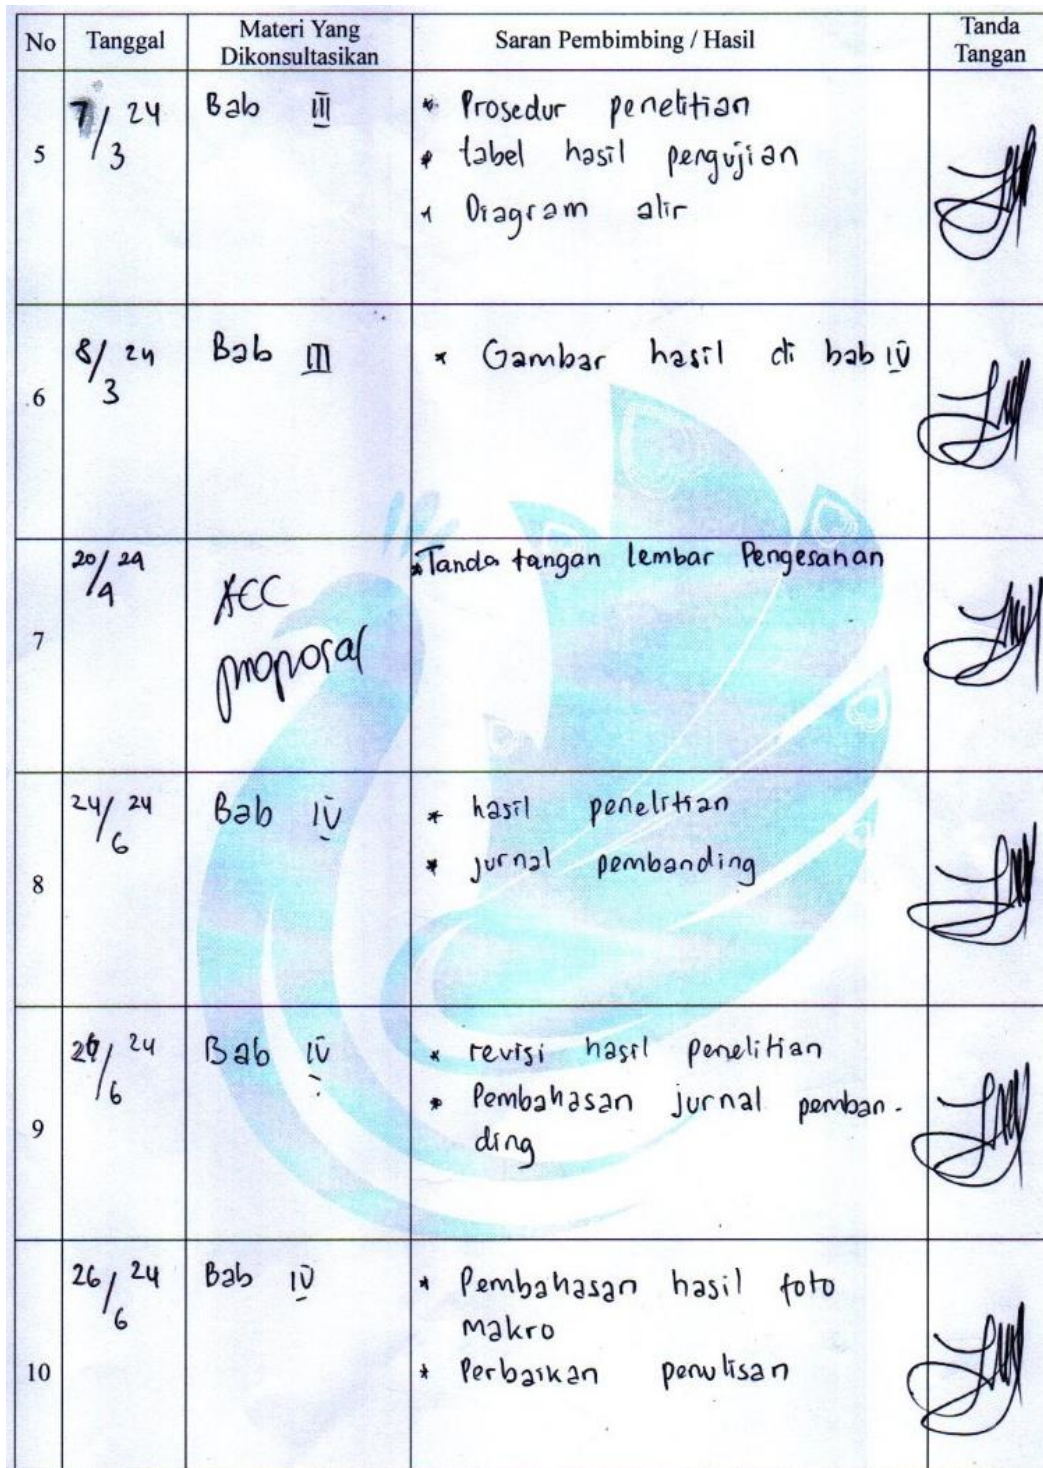 No Tanggal Materi Yang Dikonsultasikan Saran Pembimbing / Hasil Tanda Tangan
5 7/3 24 Bab III * Prosedur penelitian
* tabel hasil pengujian
* Diagram alir
6 8/3 24 Bab III * Gambar hasil di bab IV
7 20/4 24 ACC proposal * Tanda tangan lembar Pengesahan
8 24/6 24 Bab IV * hasil penelitian
* jurnal pembanding
9 /6 24 Bab IV * revisi hasil penelitian
* Pembahasan jurnal pemban-
ding
10 26/6 24 Bab IV * Pembahasan hasil foto
makro
* Perbaikan penulisan